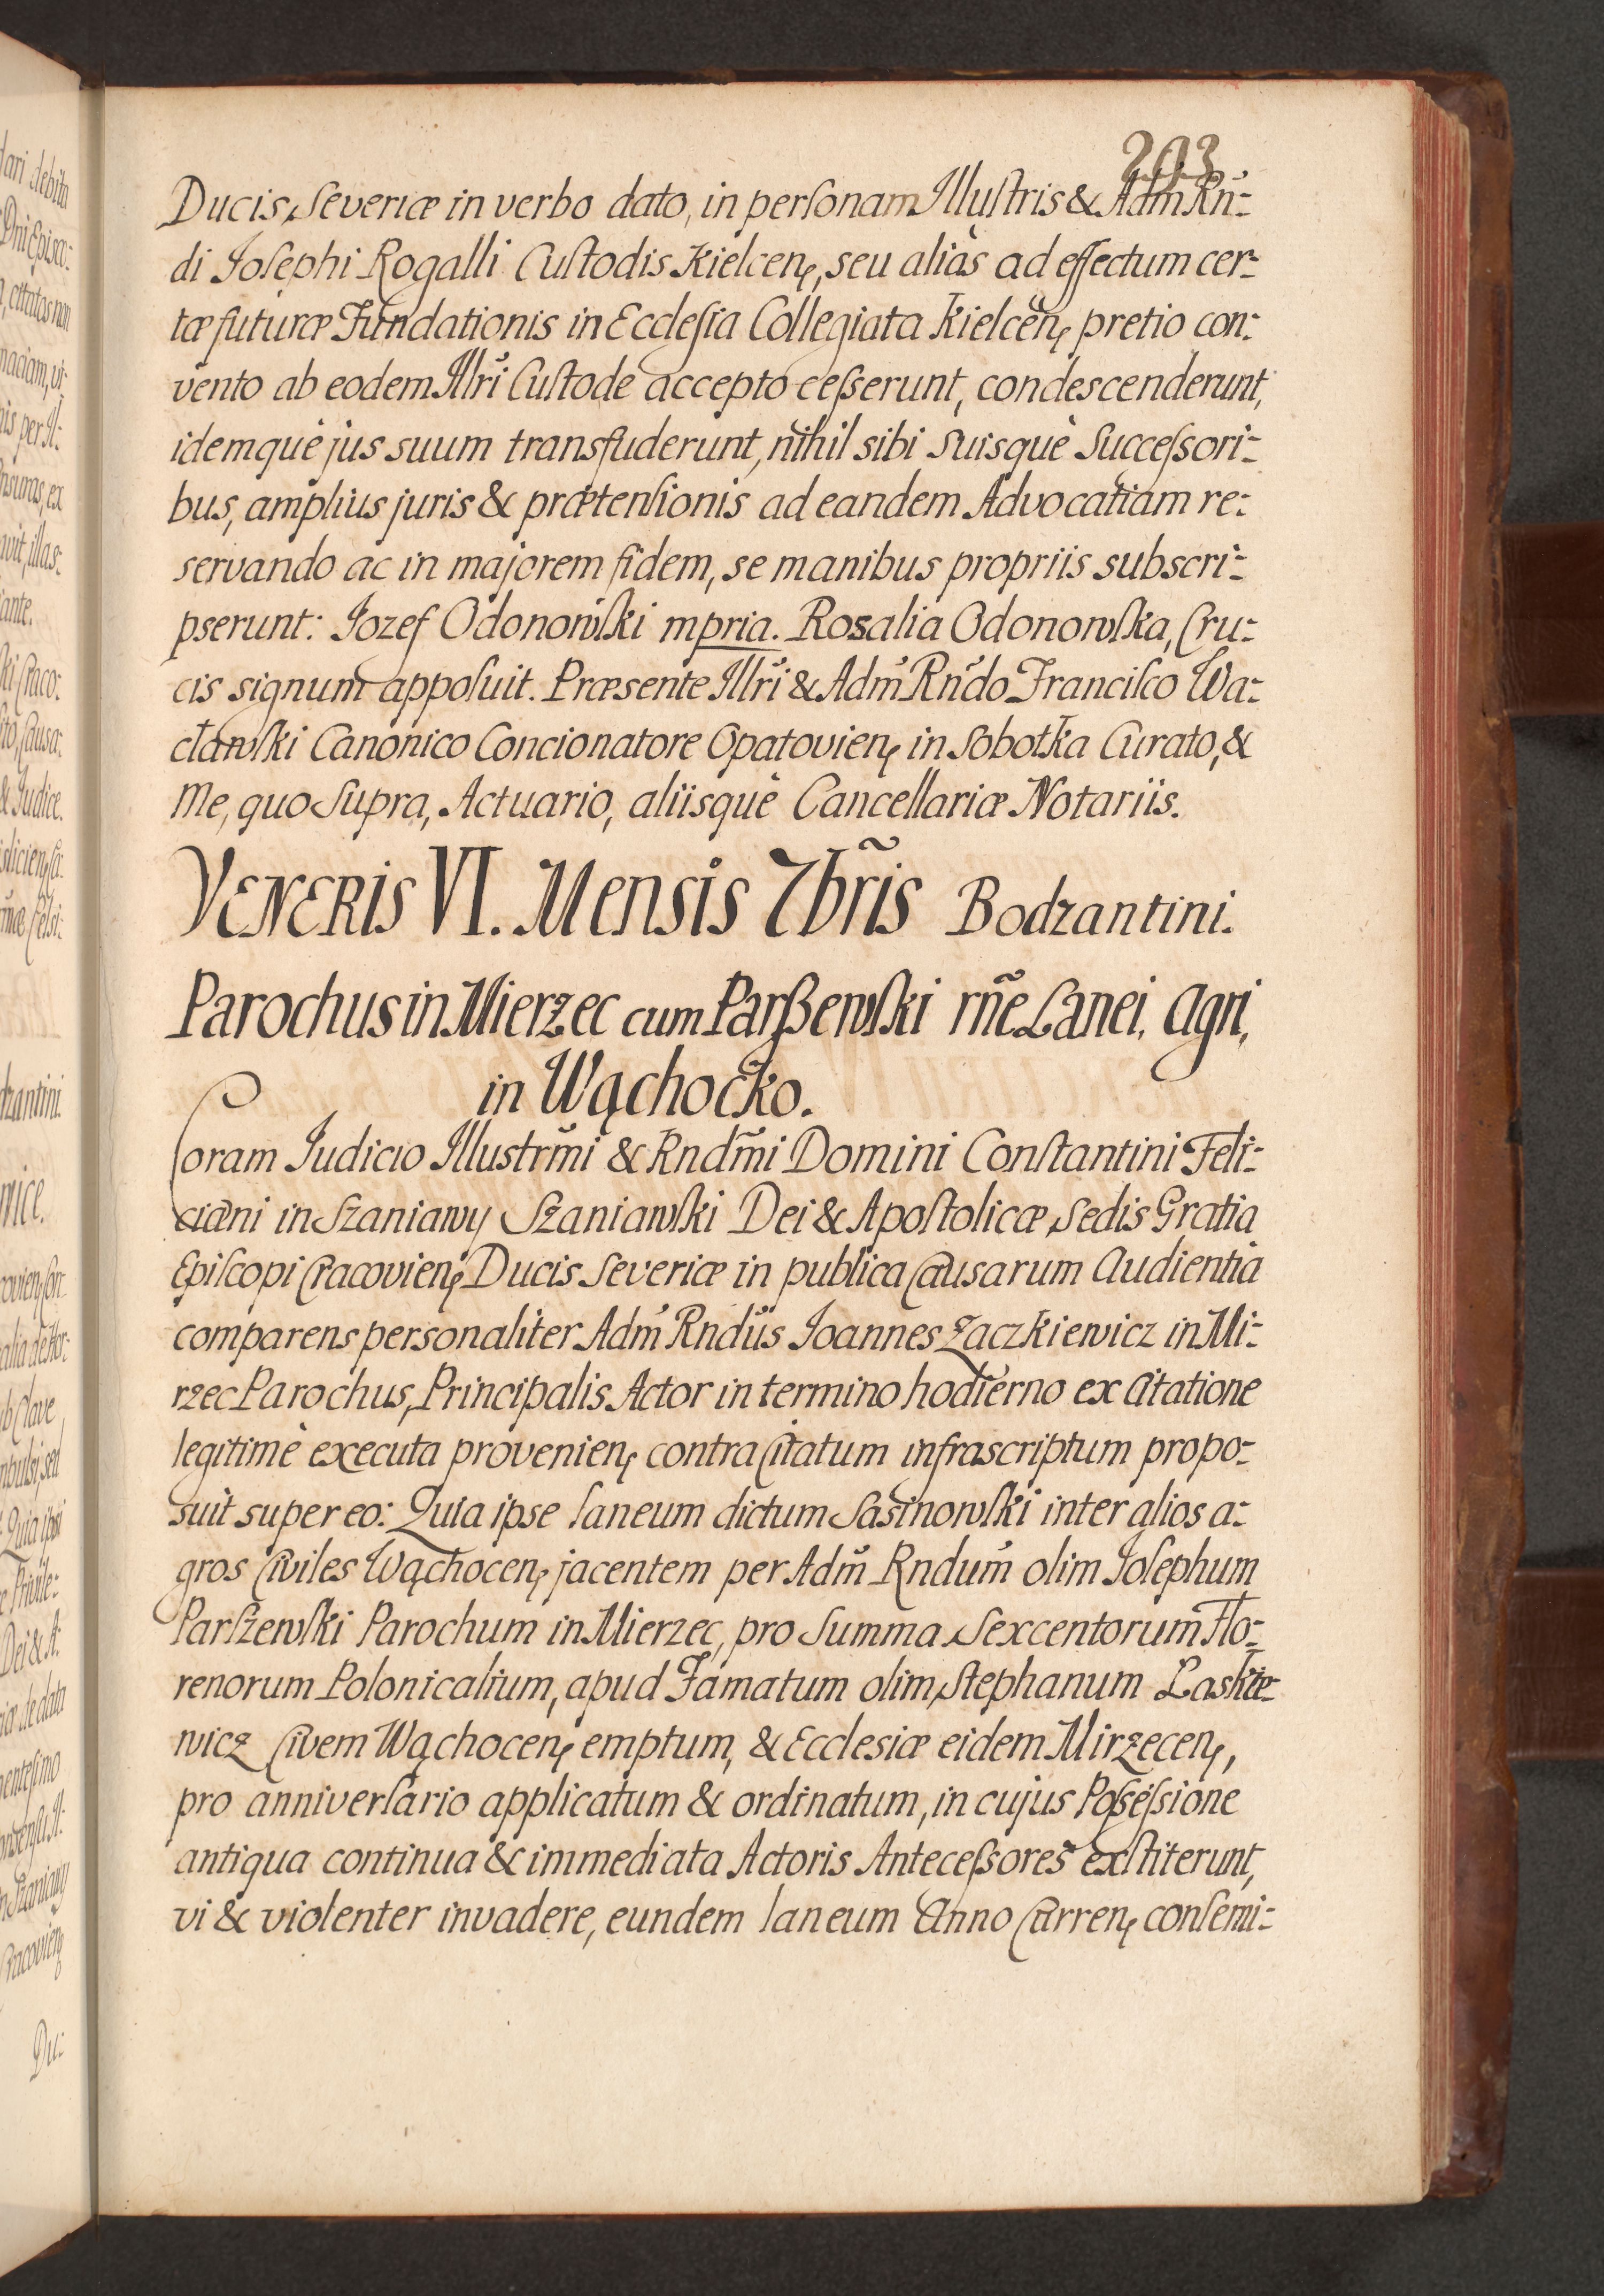 203
Ducis Severiæ in verbo dato, in perſonam Illuſtris & Adm̃ Rñ-
di Joſephi Rogalli Cuſtodis Kielcen, seu aliàs ad effectum cer-
tæ futuræ Fundationis in Eccleſia Collegiata Kielcen, pretio con-
vento ab eodem Illri Cuſtode accepto ceſserunt, condescenderunt,
idemquè jus suum transfuderunt, nihil sibi suisquè Succeſsori-
bus, amplius juris & prætenſionis ad eandem Advocatiam re-
servando ac in majorem fidem, se manibus propriis subscri-
pserunt: Jozef Odonowſki mpria. Rosalia Odonowſka, Cru-
cis signum appoſuit. Præsente Illri & Adm̃ Rñdo Franciſco Wa-
cławſki Canonico Concionatore Opatovien, in Sobotka Curato, &
Me, quo Supra, Actuario, aliisquè Cancellariæ Notariis.
VENERIS VI. Mensis 7bris̃ Bodzantini.
Parochus in Mierzec cum Parßewſki rñe Lanei, Agri,
in Wąchocko.
Coram Judicio Illustrm̃i & Rndm̃i Domini Conſtantini Feli-
ciani in Szaniawy Szaniawſki Dei & Apoſtolicæ Sedis Gratia
Epiſcopi Cracovien, Ducis Severiæ in publica Causarum Audientia
comparens personaliter Adm̃ Rndũs Joannes Zaczkiewicz in Mi-
rzec Parochus, Principalis Actor in termino hodierno ex Citatione
legitimè executa provenien, contra Citatum infrascriptum propo-
suit super eo: Quia ipse laneum dictum Sasinowſki inter alios a-
gros Civiles Wąchocen, jacentem per Adm̃ Rndum̃ olim Joſephum
Parſzewſki Parochum in Mierzec, pro Summa Sexcentorum Flo-
renorum Polonicalium, apud Famatum olim Stephanum Laskie-
wicz Civem Wąchocen, emptum, & Eccleſiæ eidem Mirzecen,
pro anniverſario applicatum & ordinatum, in cujus Poſseſsione
antiqua continua & immediata Actoris Anteceſsores exſtiterunt,
vi & violenter invadere, eundem laneum Anno Curren, conſemi-